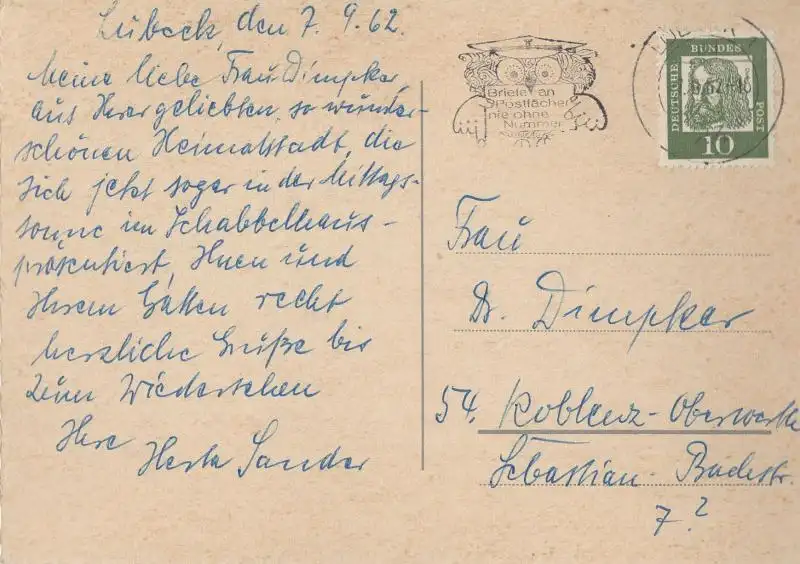 Lübeck, den 7. 9. 62.
Meine liebe Frau Dimpker,
aus Ihrer geliebten, so wunder-
schönen Heimatstadt, die
sich jetzt sogar in der Mittags-
sonne im Schabbelhaus -
präsentiert, Ihnen und
Ihrem Gatten recht
herzliche Grüße bis
zum Wiedersehen
Ihre
Herta Sander
Briefe an
Postfächer
nie ohne
Nummer
DEUTSCHE BUNDES POST
10
Frau
Dr. Dimpker
54. Koblenz-Oberwerth
Sebastian-Badestr.
7.?